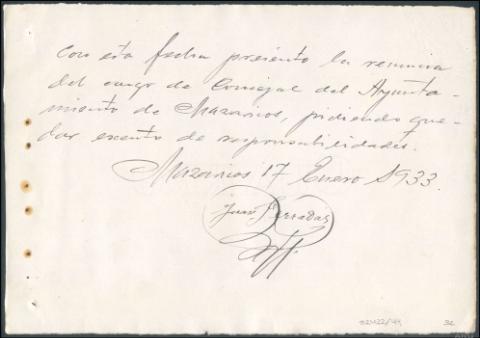 Con esta fecha presento la renuncia
del cargo de Concejal del Ayunta-
miento de Mazaricos, pidiendo que-
dar exento de responsabilidades.
Mazaricos 17 Enero 1933.
Juan
32